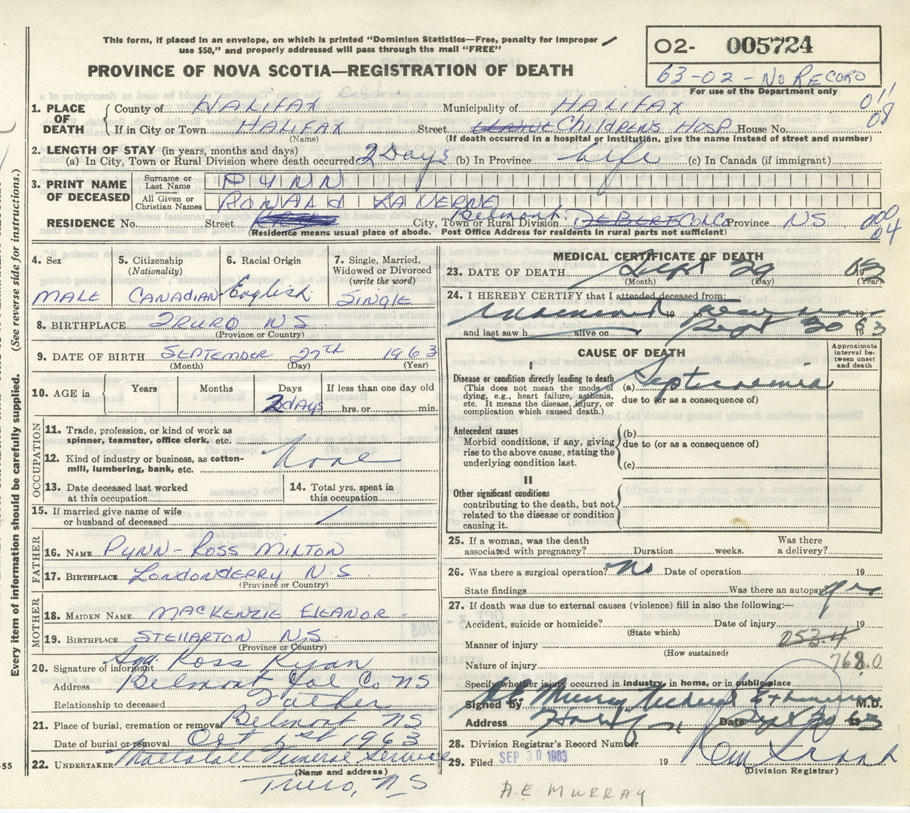 This form, if placed in an envelope, on which is printed "Dominion Statistics—Free, penalty for improper
use $50," and properly addressed will pass through the mail "FREE"
PROVINCE OF NOVA SCOTIA—REGISTRATION OF DEATH
O2- 005724
63-02-NO RECORD
For use of the Department only
1. PLACE OF DEATH County of HALIFAX Municipality of HALIFAX 011
If in City or Town HALIFAX Street CHILDRENS HOSP House No. 08
(Name) (If death occurred in a hospital or institution, give the name instead of street and number)
2. LENGTH OF STAY (in years, months and days)
(a) In City, Town or Rural Division where death occurred 2 Days (b) In Province Life (c) In Canada (if immigrant)
3. PRINT NAME OF DECEASED Surname or Last Name PYNN
All Given or Christian Names RONALD LAVERNE
RESIDENCE No. Street City, Town or Rural Division Belmont Province NS 04
(Residence means usual place of abode. Post Office Address for residents in rural parts not sufficient)
4. Sex MALE
5. Citizenship (Nationality) CANADIAN
6. Racial Origin English
7. Single, Married, Widowed or Divorced (write the word) SINGLE
8. BIRTHPLACE TRURO NS
(Province or Country)
9. DATE OF BIRTH SEPTEMBER 27TH 1963
(Month) (Day) (Year)
10. AGE in Years Months Days If less than one day old
2 days hrs. or min.
OCCUPATION
11. Trade, profession, or kind of work as spinner, teamster, office clerk, etc.
12. Kind of industry or business, as cotton-mill, lumbering, bank, etc. None
13. Date deceased last worked at this occupation
14. Total yrs. spent in this occupation
15. If married give name of wife or husband of deceased /
FATHER
16. NAME PYNN - ROSS MILTON
17. BIRTHPLACE LONDONDERRY N.S
(Province or Country)
MOTHER
18. MAIDEN NAME MACKENZIE ELEANOR
19. BIRTHPLACE STELLARTON N.S
(Province or Country)
20. Signature of informant Sgd Ross Pynn
Address Belmont Col Co NS
Relationship to deceased Father
21. Place of burial, cremation or removal Belmont NS
Date of burial or removal Oct 1st 1963
22. UNDERTAKER Mattatall Funeral Service
(Name and address)
Truro, N S
MEDICAL CERTIFICATE OF DEATH
23. DATE OF DEATH Sept 29 63
(Month) (Day) (Year)
24. I HEREBY CERTIFY that I attended deceased from:
19
and last saw h alive on Sept 30 63
CAUSE OF DEATH
Approximate interval between onset and death
I
Disease or condition directly leading to death (a) Septicaemia
(This does not mean the mode of dying, e.g., heart failure, asthenia, etc. It means the disease, injury, or complication which caused death.) due to (or as a consequence of)
Antecedent causes (b)
Morbid conditions, if any, giving rise to the above cause, stating the underlying condition last. due to (or as a consequence of)
(c)
II
Other significant conditions
contributing to the death, but not related to the disease or condition causing it.
25. If a woman, was the death associated with pregnancy? Duration weeks. Was there a delivery?
26. Was there a surgical operation? No Date of operation 19
State findings Was there an autopsy? Yes
27. If death was due to external causes (violence) fill in also the following:—
Accident, suicide or homicide? Date of injury 19
(State which)
Manner of injury 053.4
(How sustained)
Nature of injury 768.0
Specify whether injury occurred in industry, in home, or in public place
Signed by M.D.
Address Date Sept 30 63
28. Division Registrar's Record Number
29. Filed SEP 30 1963 19
(Division Registrar)
A.E MURRAY
Every item of information should be carefully supplied. (See reverse side for instructions.)
-55